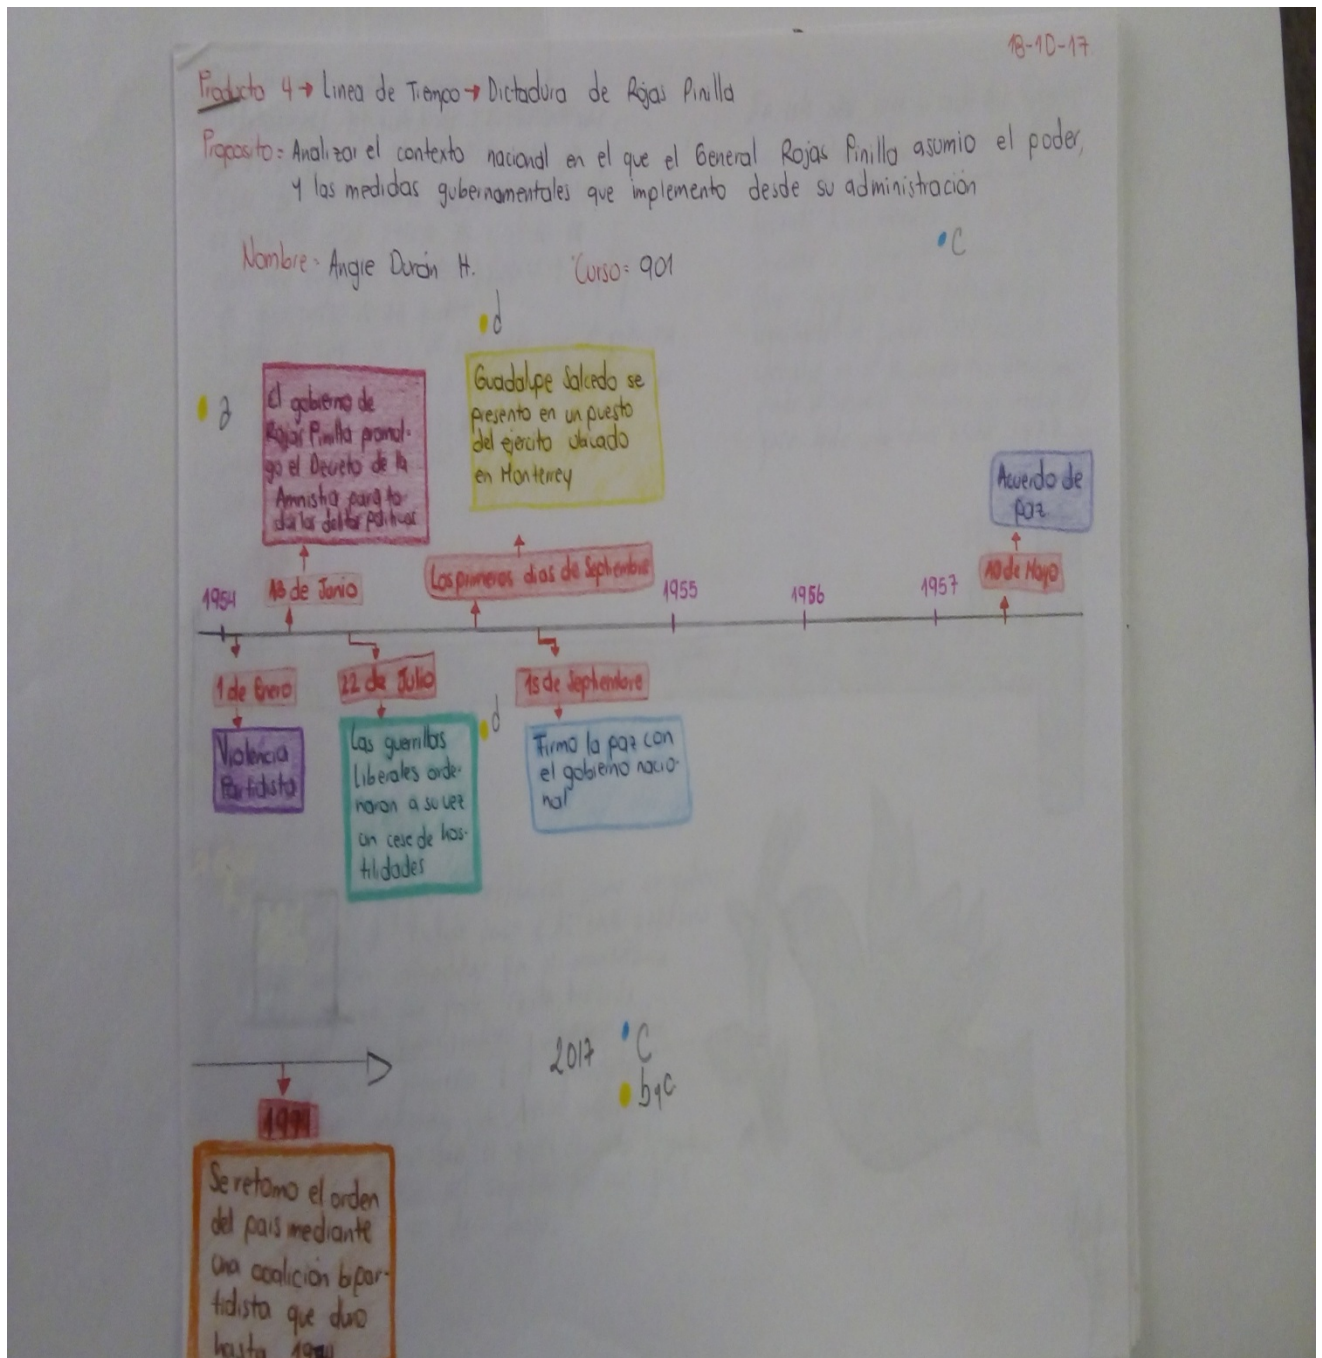 18-10-17
Producto 4 → Linea de Tiempo → Dictadura de Rojas Pinilla
Proposito: Analizar el contexto nacional en el que el General Rojas Pinilla asumio el poder,
y las medidas gubernamentales que implemento desde su administración
• C
Nombre: Angie Durán H. Curso: 901
• d
• a
El gobierno de
Rojas Pinilla promul-
go el Decreto de la
Amnistia para to-
do los delitos politicos
Guadalupe Salcedo se
presento en un puesto
del ejercito ubicado
en Monterrey
Acuerdo de
paz
1954
13 de Junio
Los primeros dias de Septiembre
1955
1956
1957
10 de Mayo
1 de Enero
22 de Julio
15 de Septiembre
• d
Violencia
Partidista
Las guerrillas
liberales orde-
naron a su vez
un cese de hos-
tilidades
Firmo la paz con
el gobierno nacio-
nal
2017 • C
• b y c
Se retomo el orden
del pais mediante
una coalición bipar-
tidista que duro
hasta